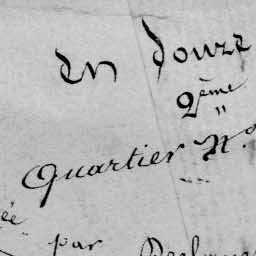 en douze
2ème "
Quartier No
ée
par